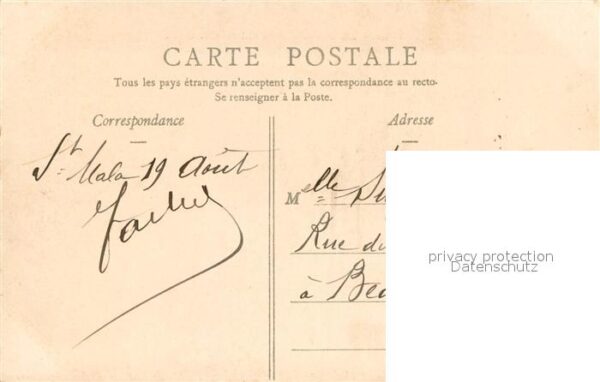 CARTE POSTALE
Tous les pays étrangers n'acceptent pas la correspondance au recto.
Se renseigner à la Poste.
Correspondance
Adresse
St Malo 19 Août
Melle
Rue du
à
privacy protection
Datenschutz